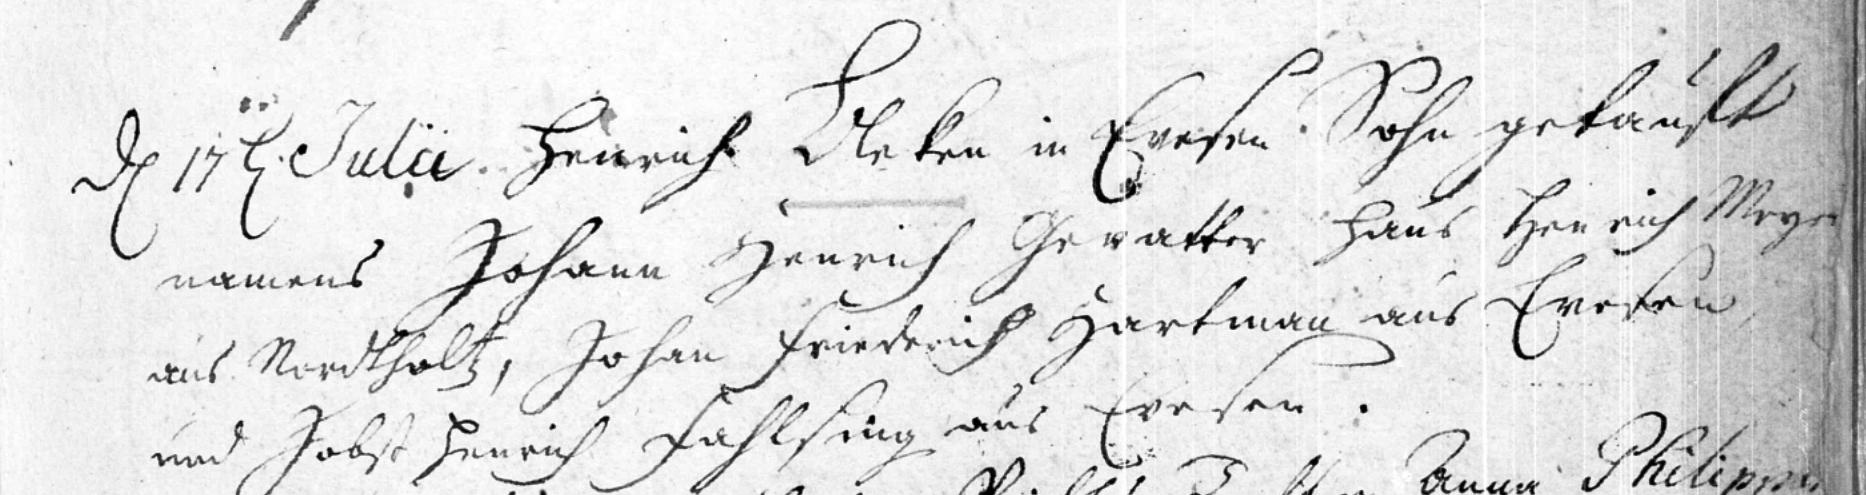 d 17t. Julii Henrich Kleken in Evesen Sohn getaufft
namens Johann Henrich Gevatter Hans Henrich Meyer
aus Nordtholtz, Johan Friederich Hartman aus Evesen
und Jobst Henrich Fahlsing aus Evesen.
Anna Philippin